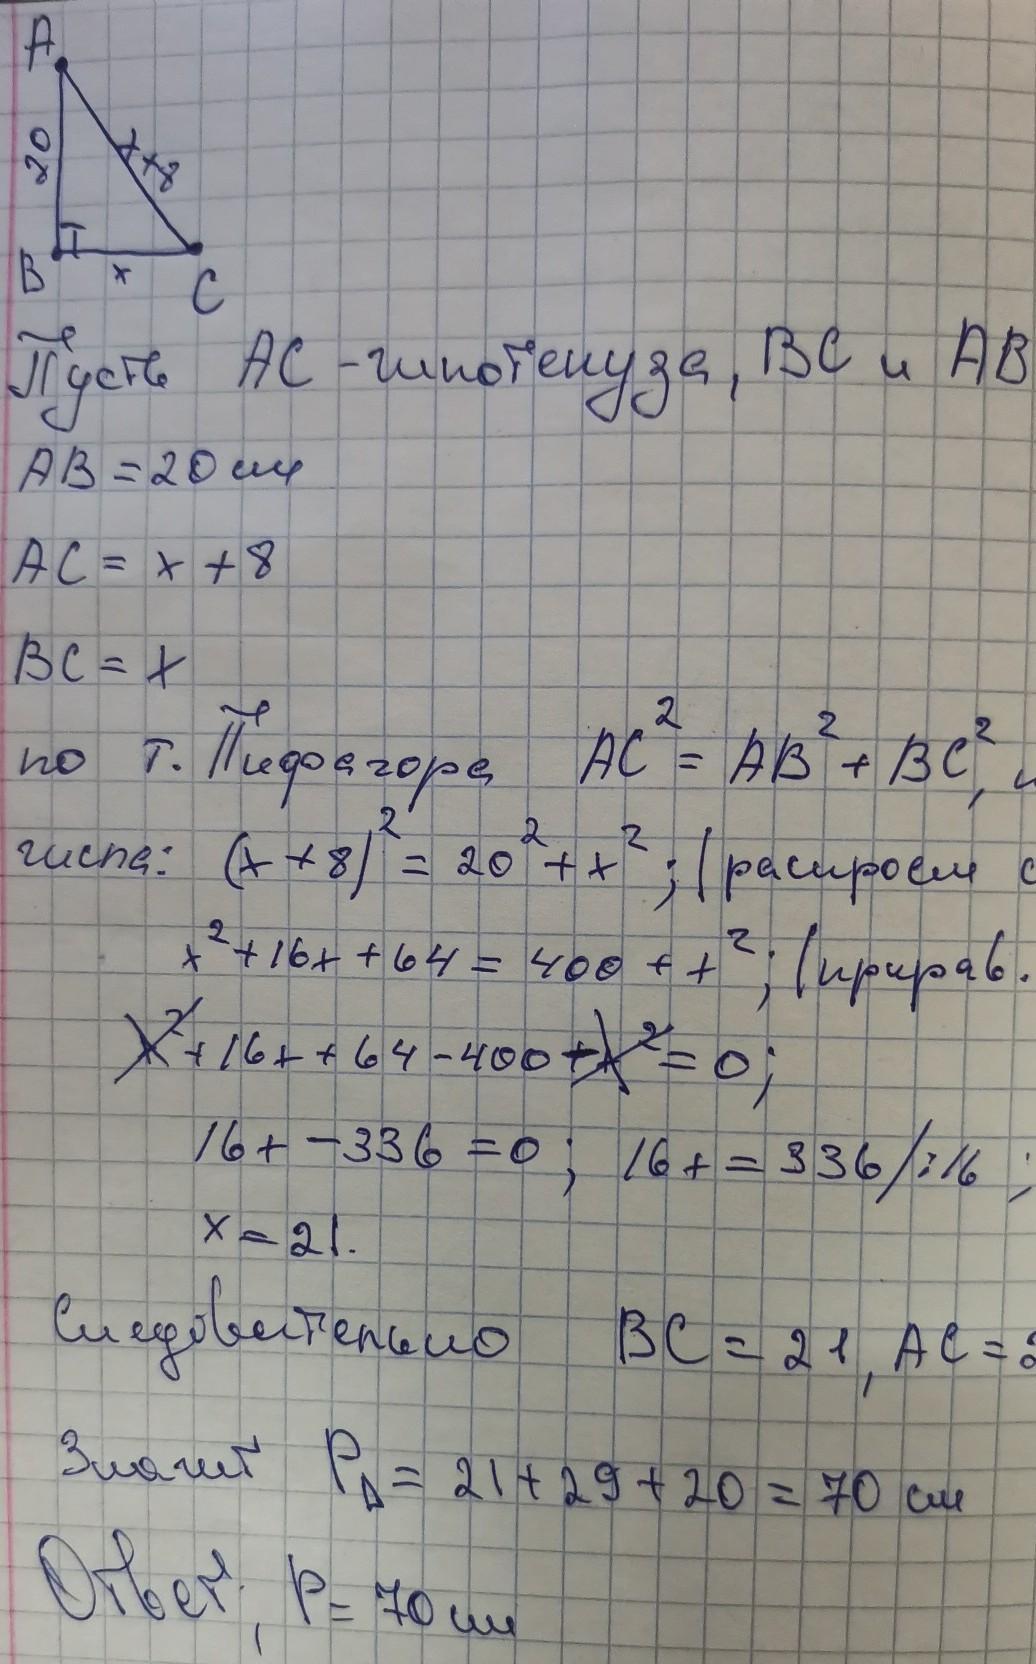 A
20
x+8
B
x
C
Пусть AC - гипотенуза, BC и AB
AB = 20 см
AC = x + 8
BC = x
по т. Пифагора AC² = AB² + BC²,
числа: (x + 8)² = 20² + x²; (
x² + 16x + 64 = 400 + x²; (прирав.
x² + 16x + 64 - 400 + x² = 0;
16x - 336 = 0; 16x = 336 /:16 ;
x = 21.
Следовательно BC = 21, AC = 2
Значит P∆ = 21 + 29 + 20 = 70 см
Ответ; P = 70 см